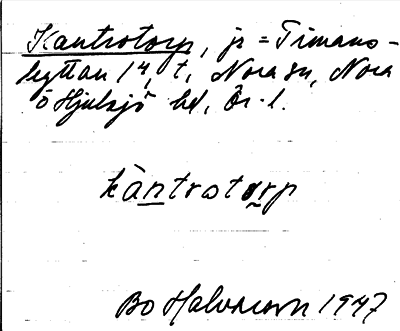 Kantrotorp, js = Timans-
hyttan 14, t, Nora sn, Nora
o Hjulsjö bd, Ör. l.
kàntrotorp
Bo Halvarsson 1947